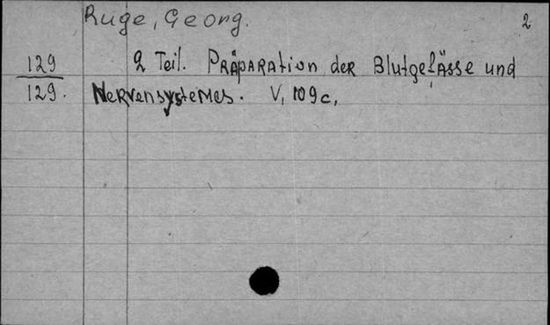 Ruge, Georg. 2
129 2 Teil. Präparation der Blutgefässe und
129. Nervensystemes. V, 109c,